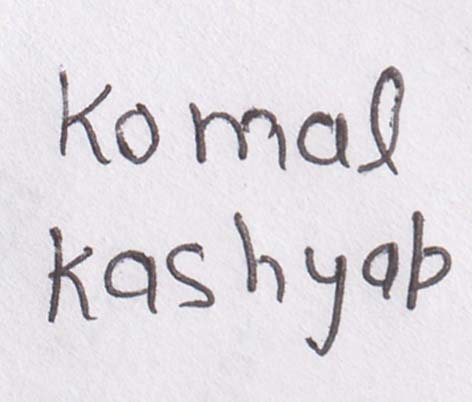 Komal
Kashyap